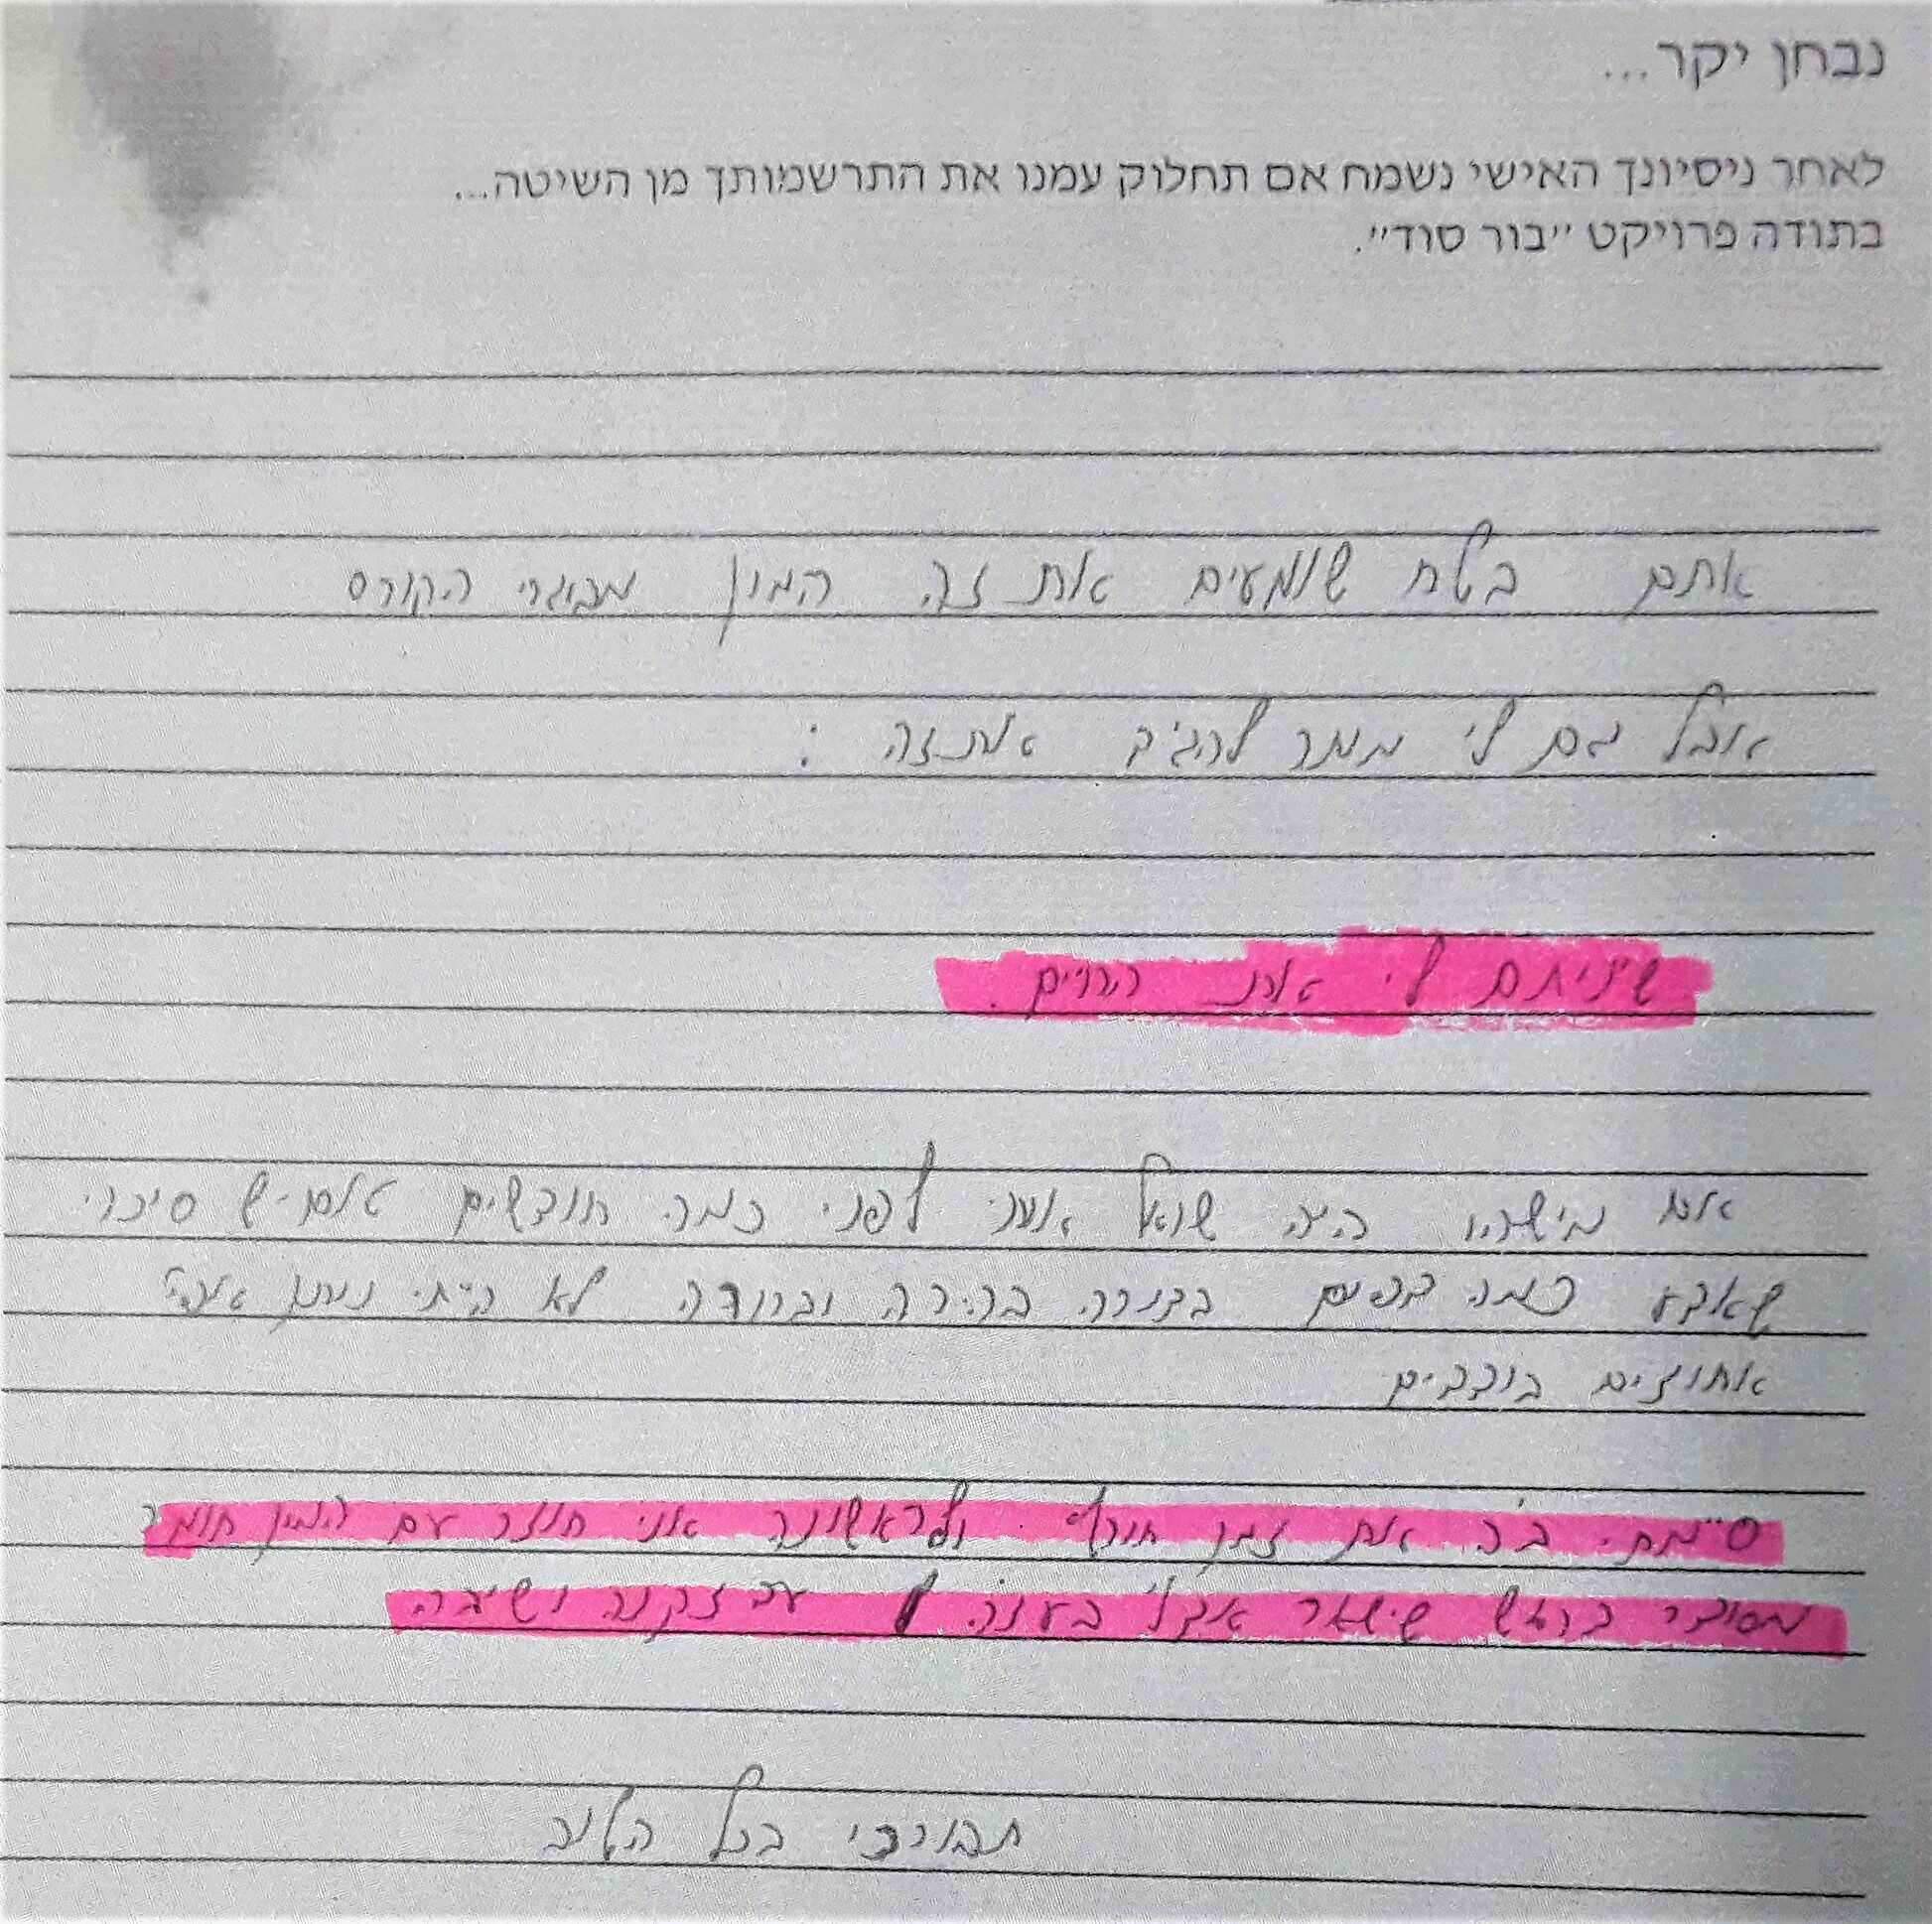 נבחן יקר...
לאחר ניסיונך האישי נשמח אם תחלוק עמנו את התרשמותך מן השיטה...
בתודה פרויקט ״בור סוד״.
אתם בטח שומעים את זה המון מבוגרי הקורס
אבל גם לי מותר להגיב את זה :
שיניתם לי את החיים .
אם מישהו היה שואל אותי לפני כמה חודשים אם יש סיכוי
שאדע כמה דפים בצורה ברורה וברורה לא הייתי נותן
אחוזים בודדים
סיימתי ב"ה את זמן חורף ולראשונה אני חוזר עם המון חומר
מסודר בראש שישאר אצלי בעזה עד זקנה ושיבה
תבורכו בכל הטוב